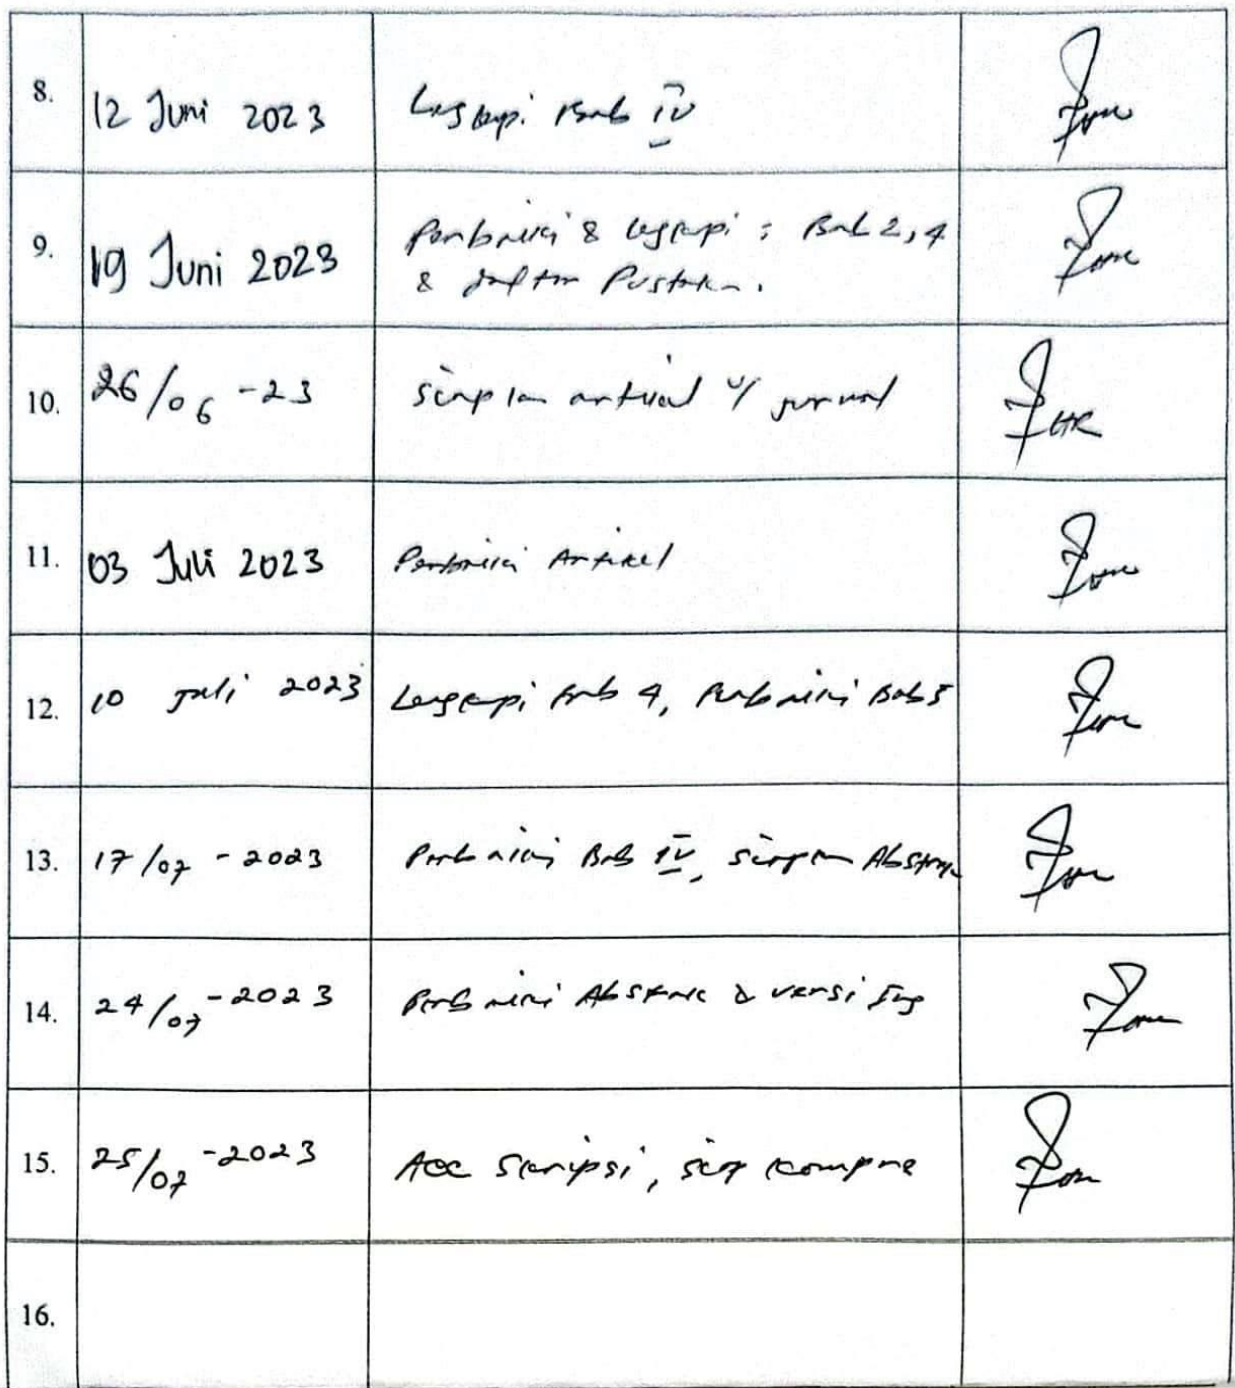 8. 12 Juni 2023 Lengkapi Bab IV
9. 19 Juni 2023 Perbaiki & lengkapi : Bab 2, 4
& daftar Pustaka.
10. 26/06 -23 Siapkan artikel u/ jurnal
11. 03 Juli 2023 Perbaiki Artikel
12. 10 Juli 2023 Lengkapi Bab 4, Perbaiki Bab 5
13. 17/07 - 2023 Perbaiki Bab IV, siapkan Abstrak
14. 24/07 - 2023 Perbaiki Abstrak & versi Ing
15. 25/07 - 2023 Acc Skripsi, siap kompre
16.